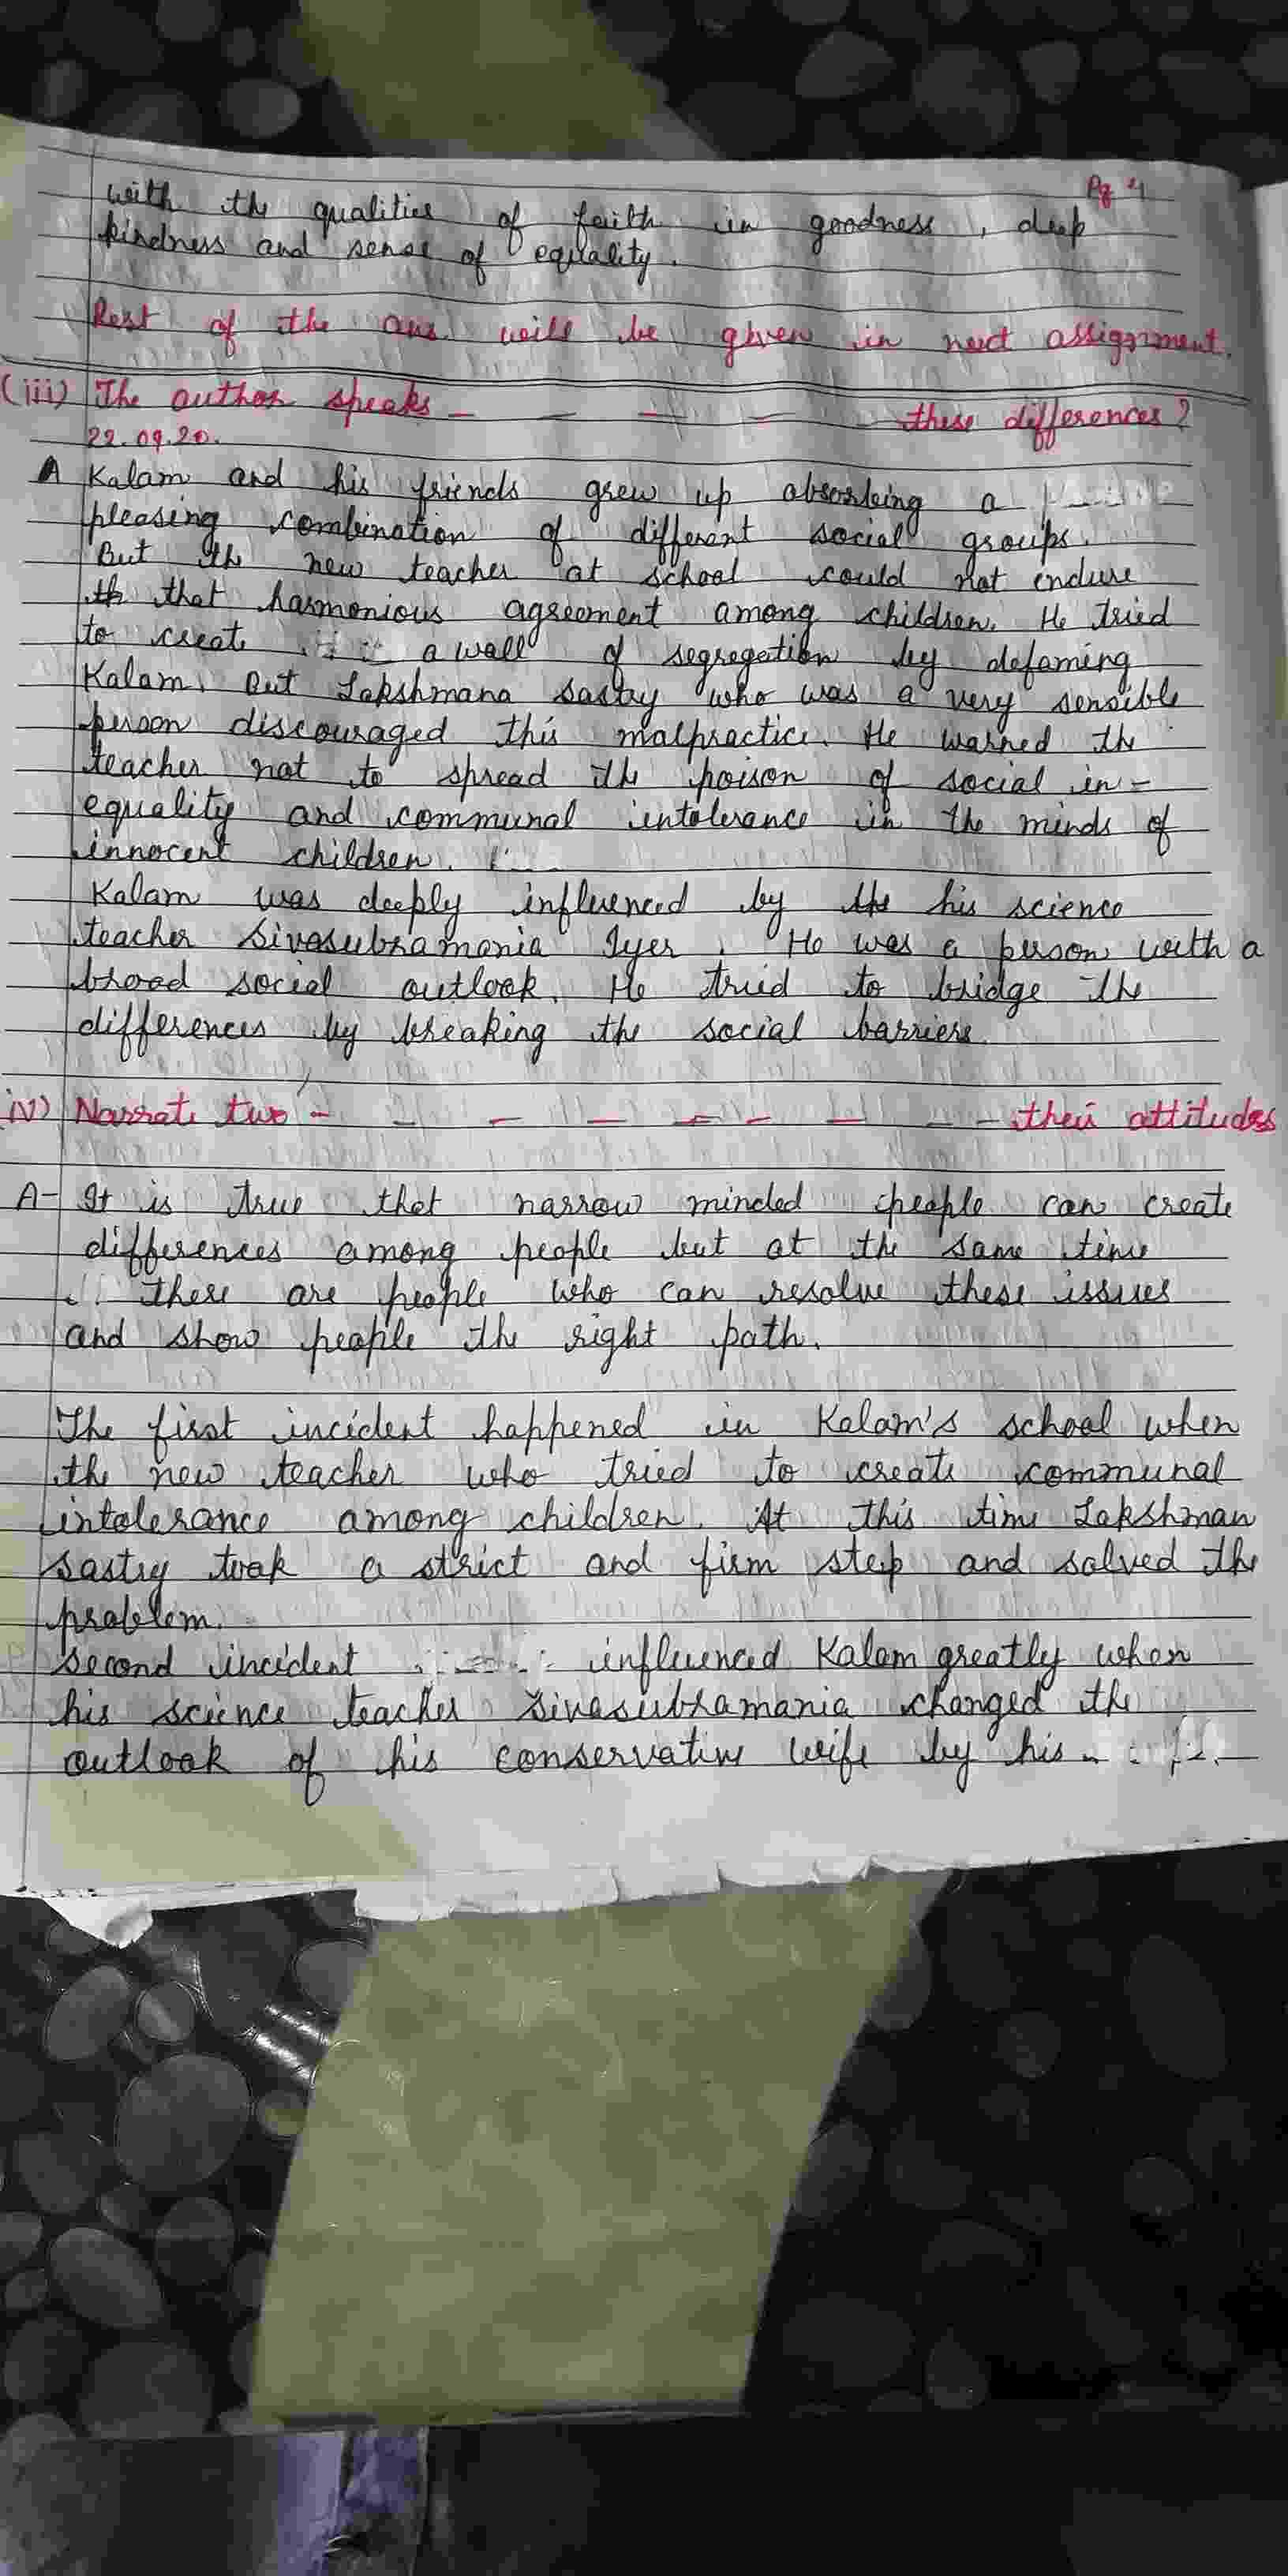 Pg 4
with the qualities of faith in goodness, deep
kindness and sense of equality.
Rest of the ans. will be given in next assignment.
(iii) The author speaks - - - - these differences?
22.09.20.
A Kalam and his friends grew up absorbing a
pleasing combination of different social groups.
But the new teacher at school could not endure
th that harmonious agreement among children. He tried
to create a wall of segregation by defaming
Kalam. But Lakshmana Sastry who was a very sensible
person discouraged this malpractice. He warned the
teacher not to spread the poison of social in-
equality and communal intolerance in the minds of
innocent children.
Kalam was deeply influenced by the his science
teacher Sivasubramania Iyer. He was a person with a
broad social outlook. He tried to bridge the
differences by breaking the social barriers.
iv) Narrate two - - - - - - - - their attitudes
A- It is true that narrow minded people can create
differences among people but at the same time
there are people who can resolve these issues
and show people the right path.
The first incident happened in Kalam's school when
the new teacher who tried to create communal
intolerance among children. At this time Lakshman
Sastry took a strict and firm step and solved the
problem.
Second incident influenced Kalam greatly when
his science teacher Sivasubramania changed the
outlook of his conservative wife by his